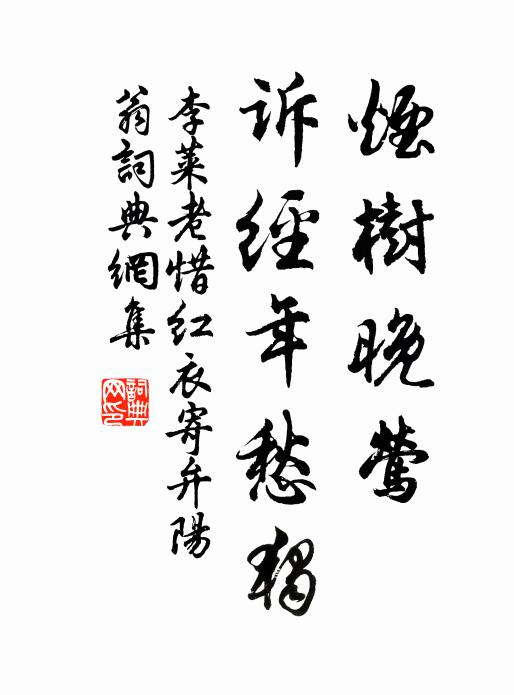 煙樹晚鶯
訴經年愁獨
李萊老惜紅衣寄弁陽
翁詞典網集
詞典
网印